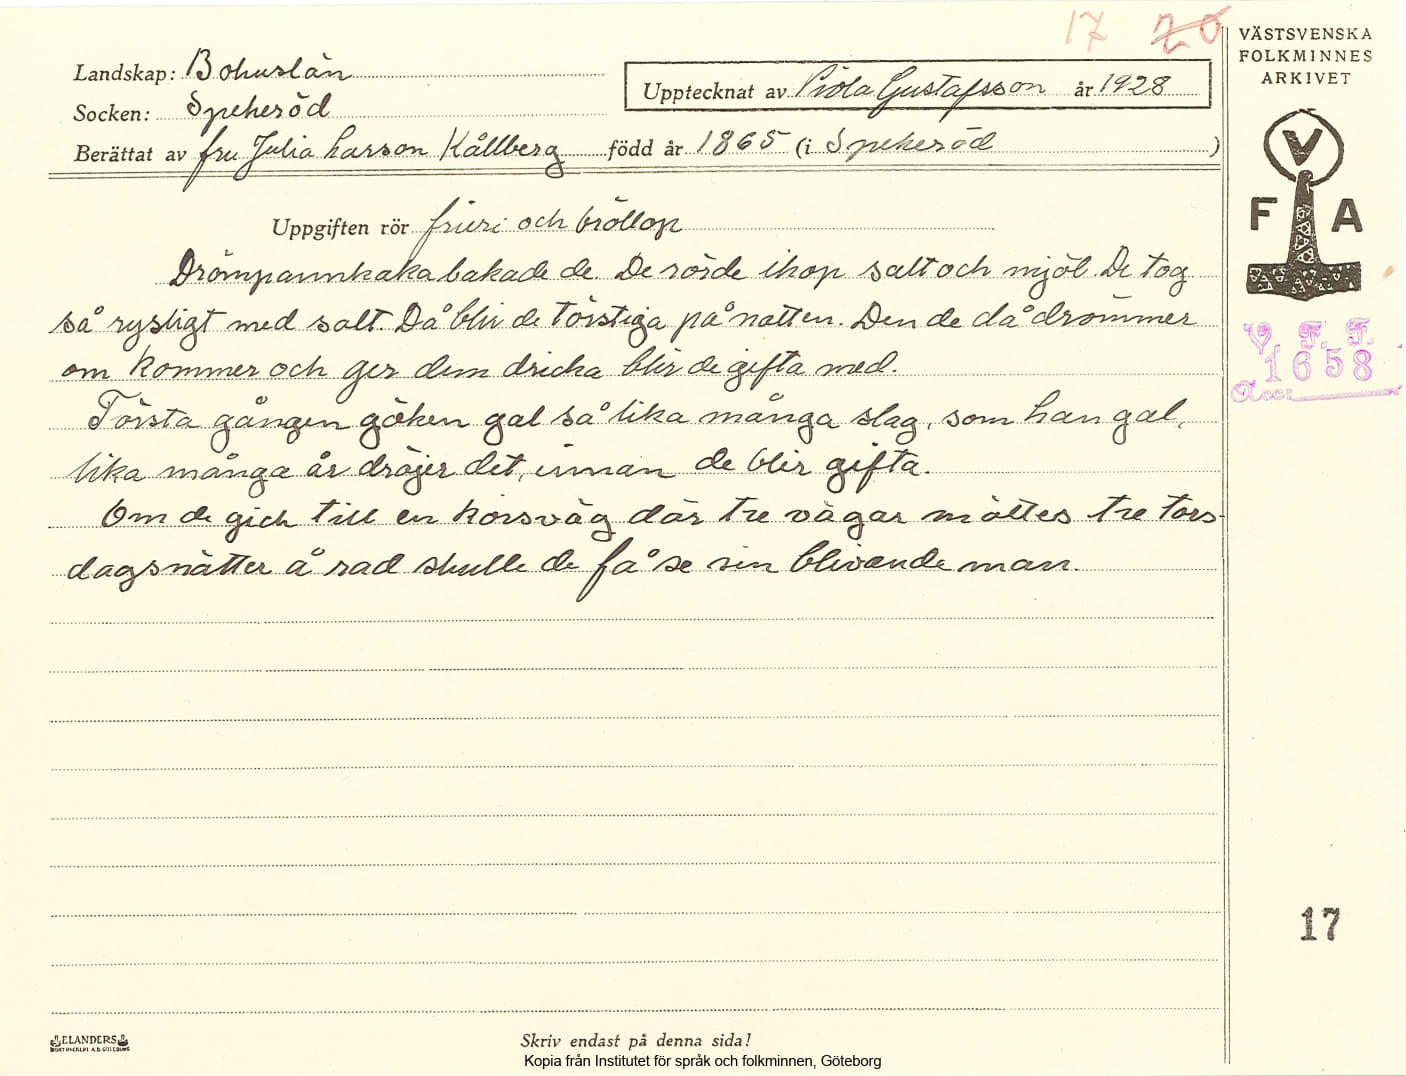 17 20
VÄSTSVENSKA
FOLKMINNES
ARKIVET
Landskap: Bohuslän
Upptecknat av Viola Gustafsson år 1928
Socken: Spekeröd
Berättat av fru Julia Larson Kållberg född år 1865 (i Spekeröd )
V
F A
Uppgiften rör frieri och bröllop
Drömpannkaka bakade de. De rörde ihop salt och mjöl. De tog
så rysligt med salt. Då blir de törstiga på natten. Den de då drömmer
om kommer och ger dem dricka blir de gifta med.
Första gången göken gal så lika många slag, som han gal,
lika många år dröjer det, innan de blir gifta.
Om de gick till en korsväg där tre vägar möttes tre tors-
dagsnätter å rad skulle de få se sin blivande man.
V. F. F.
1658
Acc:
17
ELANDERS
Skriv endast på denna sida!
Kopia från Institutet för språk och folkminnen, Göteborg